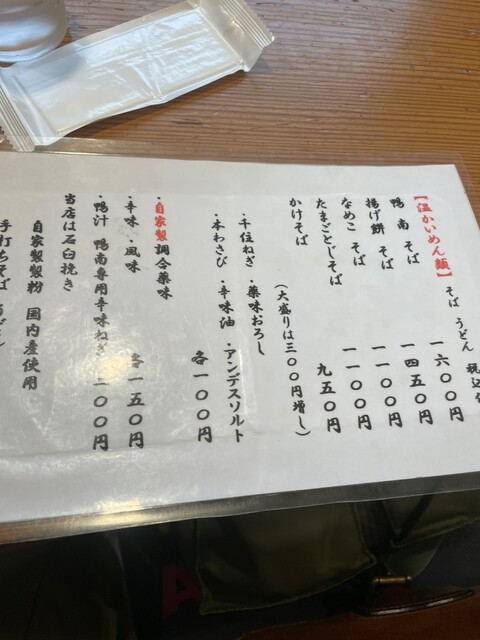 【温かいめん類】 そば うどん 税込
鴨南そば 一六〇〇円
揚げ餅そば 一四五〇円
なめこそば 一一〇〇円
たまごとじそば 一一〇〇円
かけそば 九五〇円
(大盛りは三〇〇円増し)
・千住ねぎ ・薬味おろし
・本わさび ・辛味油 ・アンデスソルト
各一〇〇円
・自家製調合薬味
・辛味・風味 各一五〇円
・鴨汁 鴨南専用辛味ねぎ 二〇〇円
当店は石臼挽き
自家製製粉 国内産使用
手打ちそば うどん